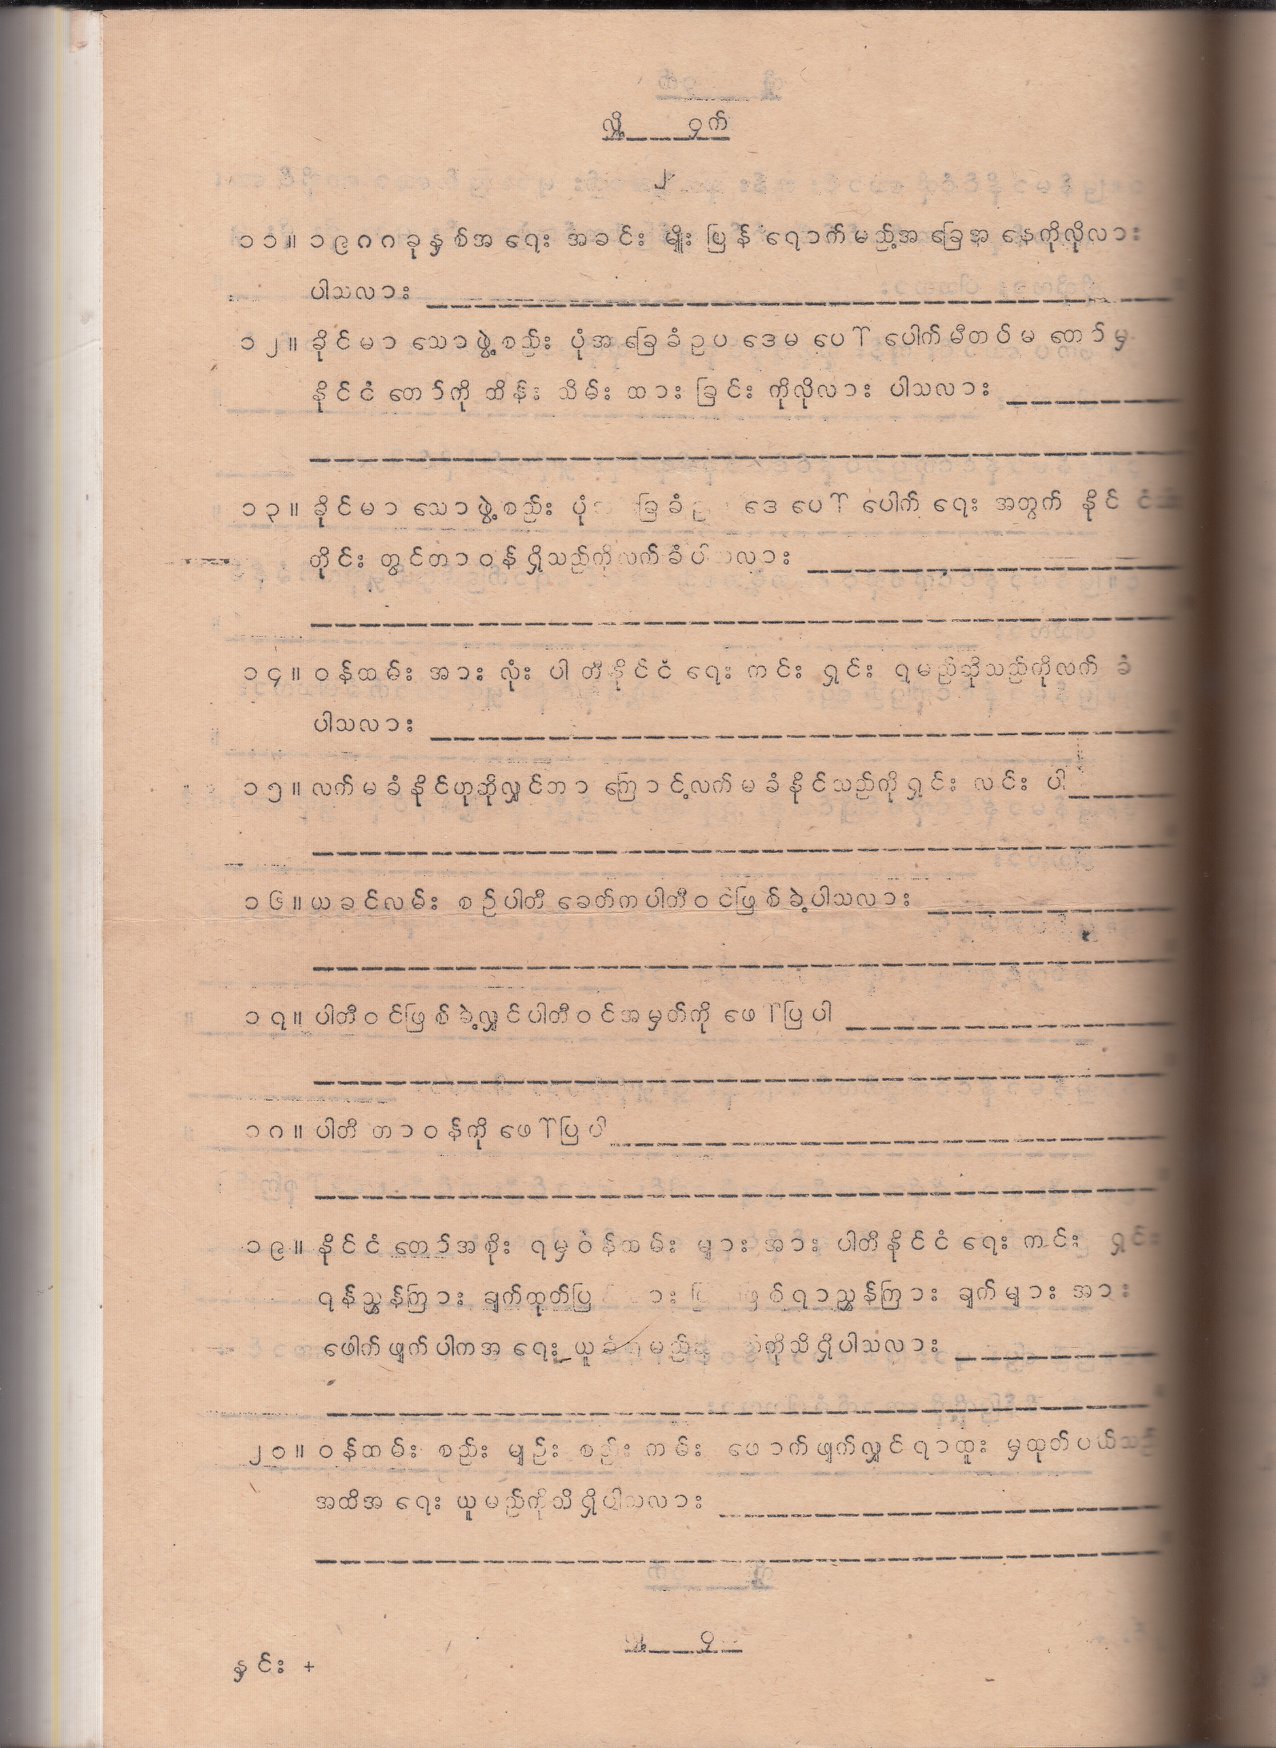 လျှို့ ဝှက်
၂
၁၁။ ၁၉၈၈ခုနှစ်အရေးအခင်းမျိုး ပြန်ရောက်မည့်အခြေအနေကိုလိုလား
ပါသလား
၁၂။ ခိုင်မာသောဖွဲ့စည်းပုံအခြေခံဥပဒေမပေါ်ပေါက်မီတပ်မတော်မှ
နိုင်ငံတော်ကို ထိန်းသိမ်းထားခြင်းကိုလိုလားပါသလား
၁၃။ ခိုင်မာသောဖွဲ့စည်းပုံ ခြေခံ ဒေပေါ်ပေါက်ရေးအတွက် နိုင်ငံသား
တိုင်းတွင်တာဝန်ရှိသည်ကိုလက်ခံပါသလား
၁၄။ ဝန်ထမ်းအားလုံး ပါတီနိုင်ငံရေးကင်းရှင်းရမည်ဆိုသည်ကိုလက်ခံ
ပါသလား
၁၅။ လက်မခံနိုင်ဟုဆိုလျှင်ဘာကြောင့်လက်မခံနိုင်သည်ကိုရှင်းလင်းပါ
၁၆။ ယခင်လမ်းစဉ်ပါတီခေတ်ကပါတီဝင်ဖြစ်ခဲ့ပါသလား
၁၇။ ပါတီဝင်ဖြစ်ခဲ့လျှင်ပါတီဝင်အမှတ်ကို ဖော်ပြပါ
၁၈။ ပါတီတာဝန်ကိုဖော်ပြပါ
၁၉။ နိုင်ငံတော်အစိုးရမှဝန်ထမ်းများအား ပါတီနိုင်ငံရေးကင်းရှင်း
ရန်ညွှန်ကြားချက်ထုတ်ပြ ညွှန်ကြားချက်များအား
ဖေါက်ဖျက်ပါကအရေးယူခံရမည် ကိုသိရှိပါသလား
၂၀။ ဝန်ထမ်းစည်းမျဉ်းစည်းကမ်း ဖောက်ဖျက်လျှင်ရာထူးမှထုတ်ပယ်သည်
အထိအရေးယူမည်ကိုသိရှိပါသလား
နှင်း +